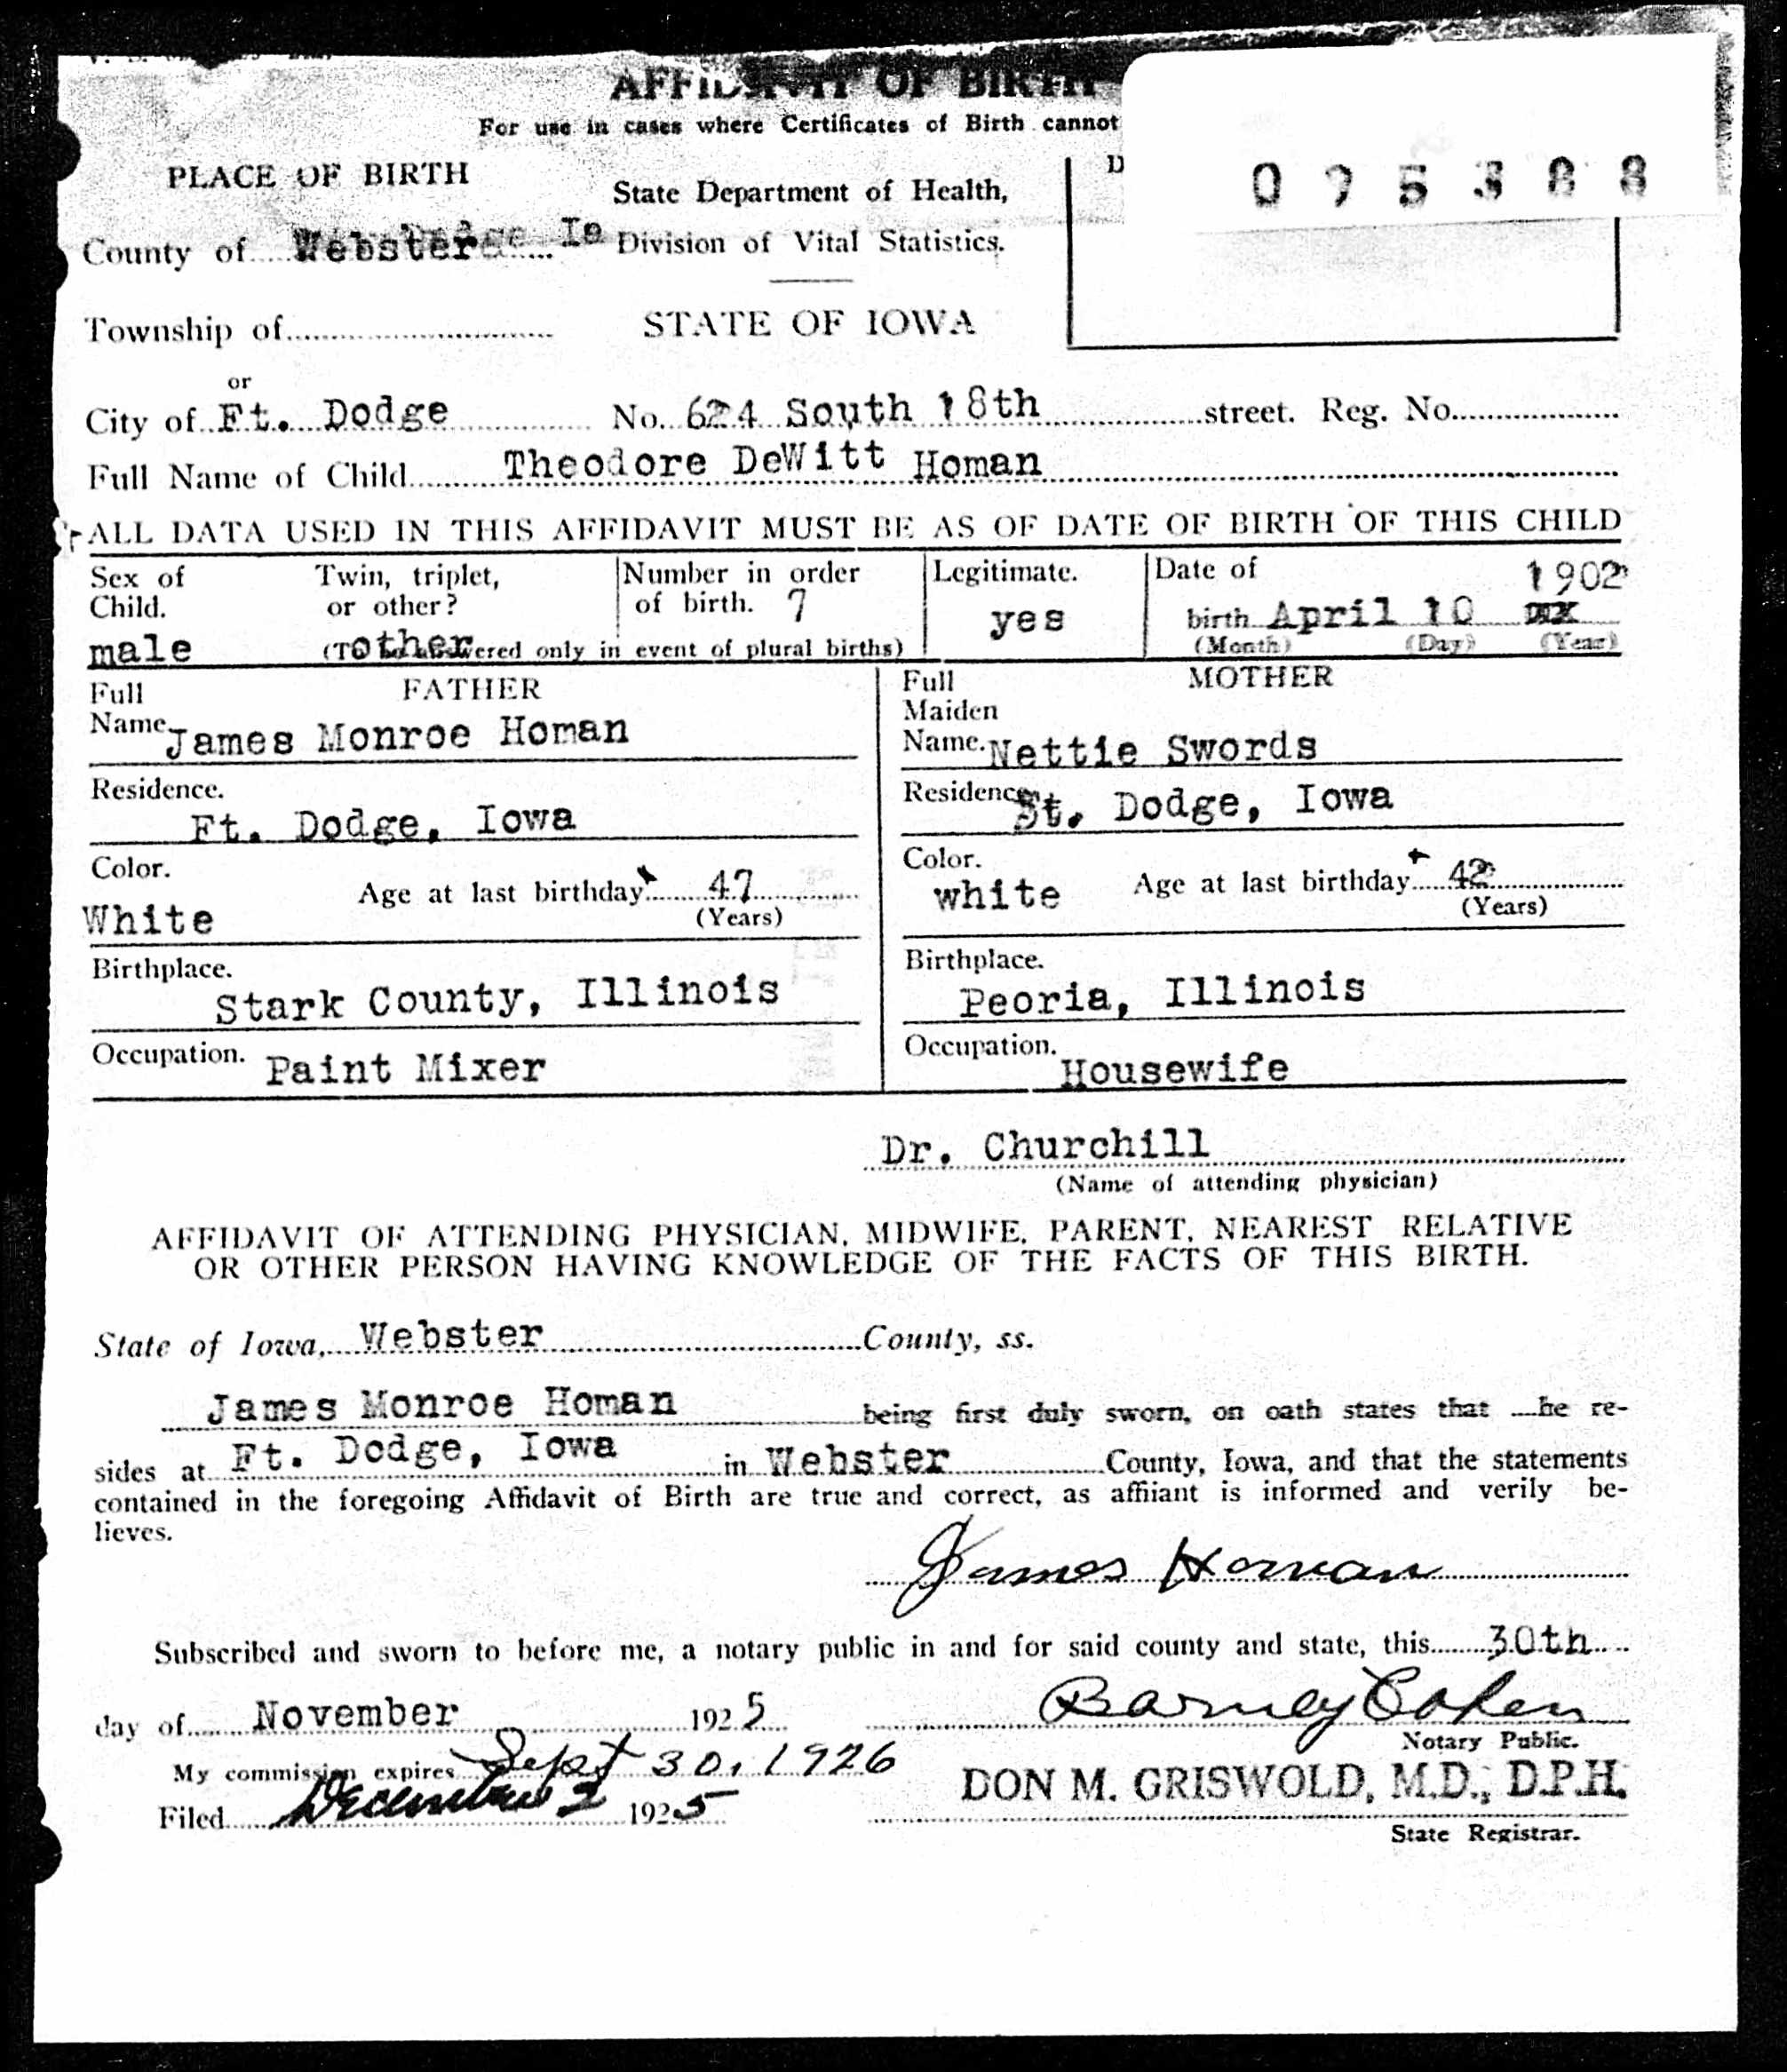 AFFIDAVIT OF BIRTH
For use in cases where Certificates of Birth cannot
PLACE OF BIRTH
State Department of Health,
D
075388
County of Webster Ia
Division of Vital Statistics.
Township of
STATE OF IOWA
or
City of Ft. Dodge No. 624 South 18th street. Reg. No.
Full Name of Child Theodore DeWitt Homan
ALL DATA USED IN THIS AFFIDAVIT MUST BE AS OF DATE OF BIRTH OF THIS CHILD
Sex of Twin, triplet, Number in order Legitimate. Date of 1902
Child. or other? of birth. 7 yes birth April 10
male other (To be answered only in event of plural births) (Month) (Day) (Year)
Full FATHER
Name James Monroe Homan
Residence.
Ft. Dodge, Iowa
Color.
Age at last birthday 47
White (Years)
Birthplace.
Stark County, Illinois
Occupation. Paint Mixer
Full MOTHER
Maiden
Name. Nettie Swords
Residence. Dodge, Iowa
Color.
white Age at last birthday 42
(Years)
Birthplace.
Peoria, Illinois
Occupation.
Housewife
Dr. Churchill
(Name of attending physician)
AFFIDAVIT OF ATTENDING PHYSICIAN, MIDWIFE, PARENT, NEAREST RELATIVE
OR OTHER PERSON HAVING KNOWLEDGE OF THE FACTS OF THIS BIRTH.
State of Iowa, Webster County, ss.
James Monroe Homan being first duly sworn, on oath states that he re-
sides at Ft. Dodge, Iowa in Webster County, Iowa, and that the statements
contained in the foregoing Affidavit of Birth are true and correct, as affiiant is informed and verily be-
lieves.
James Homan
Subscribed and sworn to before me, a notary public in and for said county and state, this 30th
day of November 1925 Barney Cohen
Notary Public.
My commission expires Sept 30, 1926
DON M. GRISWOLD, M.D., D.P.H.
Filed December 2 1925
State Registrar.